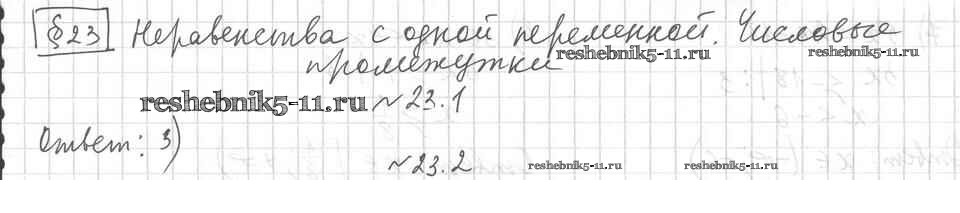 §23 Неравенства с одной переменной. Числовые
reshebnik5-11.ru reshebnik5-11.ru
промежутки
reshebnik5-11.ru №23.1
Ответ: 3)
№23.2 reshebnik5-11.ru reshebnik5-11.ru